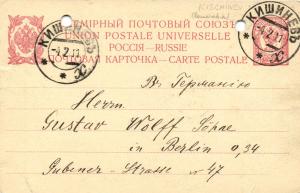 KISCHINEV
ВСЕМІРНЫЙ ПОЧТОВЫЙ СОЮЗЪ
UNION POSTALE UNIVERSELLE
РОССІЯ—RUSSIE
ПОЧТОВАЯ КАРТОЧКА—CARTE POSTALE
КИШИНЕВЪ
-4.2.11
КИШИНЕВЪ
-4.2.11
Въ Германію
Herrn
Gustav Wolff Söhne
in Berlin O, 34
Gubener-Strasse № 47